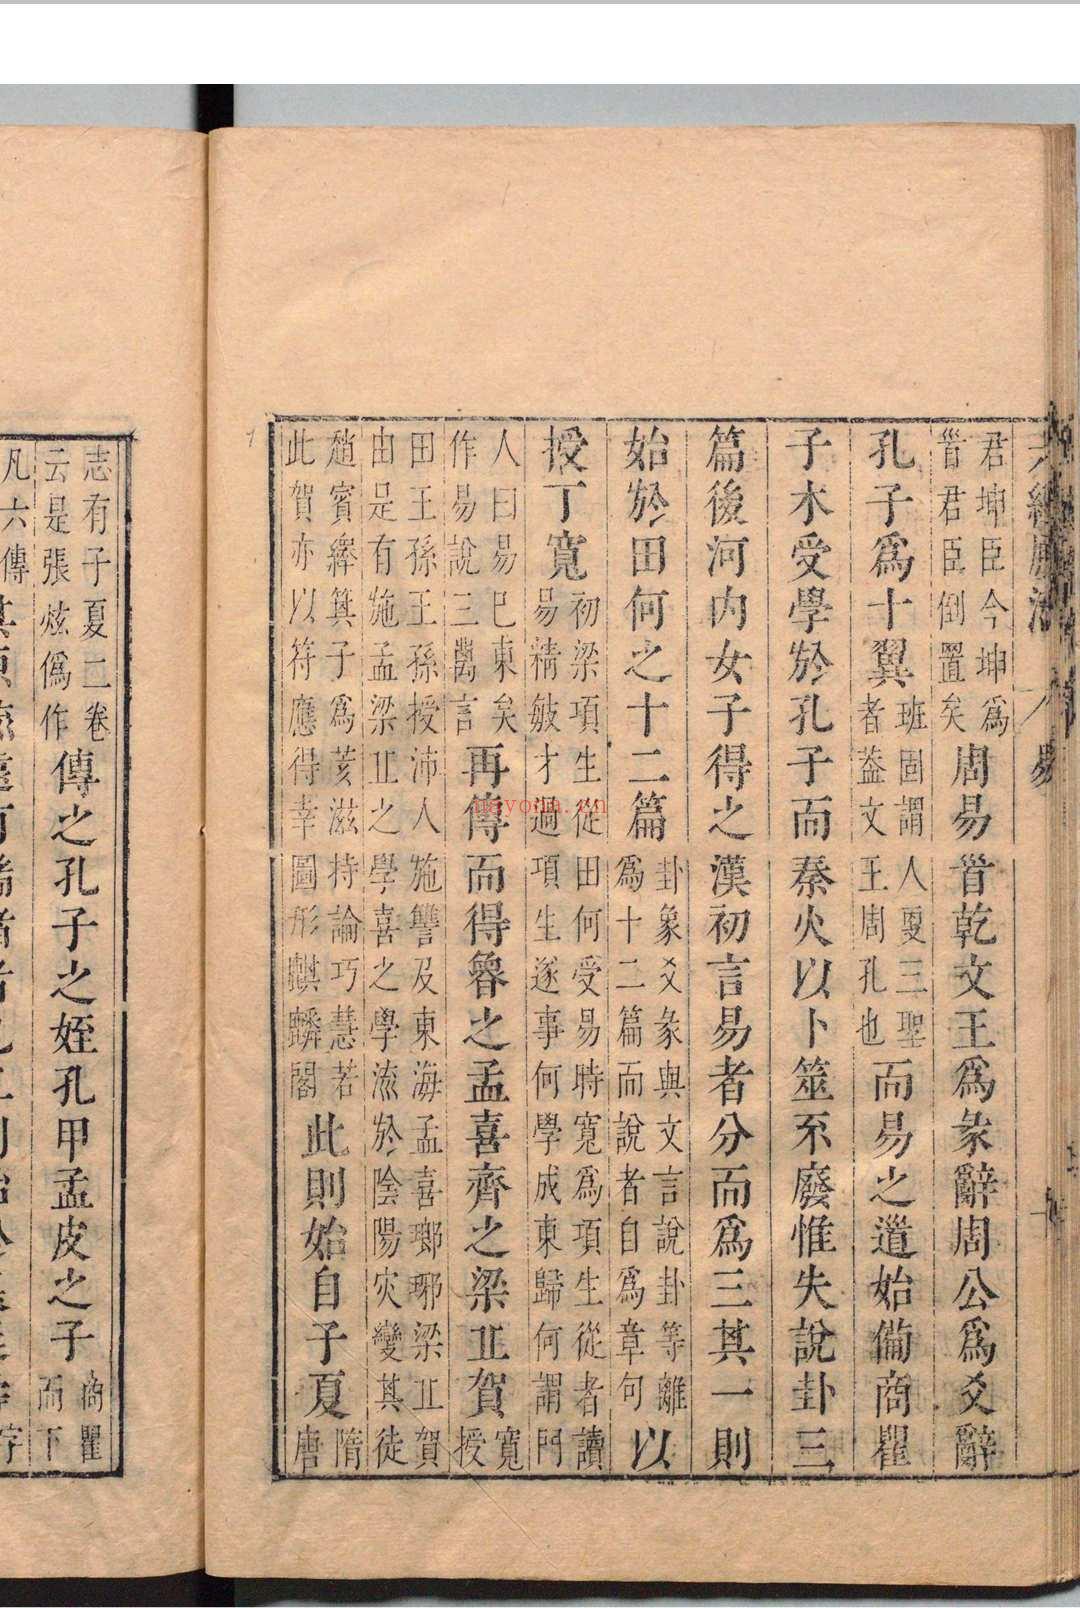 經 易
君坤臣今坤爲
首君臣倒置矣
周易首乾文王爲彖辭周公爲爻辭
孔子爲十翼
班固謂人更三聖
者葢文王周孔也
而易之道始備商瞿
子木受學於孔子而秦火以卜筮不廢惟失說卦三
篇後河內女子得之漢初言易者分而爲三其一則
始於田何之十二篇
卦象爻彖與文言說卦等離
爲十二篇而說者自爲章句
以
授丁寬
初梁項生從田何受易時寬爲項生從者讀
易精敏才過項生遂事何學成東歸何謂門
人曰易已東矣
作易說三萬言
再傳而得魯之孟喜齊之梁丘賀
寬
授
田王孫王孫授沛人施讐及東海孟喜瑯琊梁丘賀
由是有施孟梁丘之學喜之學流於陰陽灾變其徒
趙賓繹箕子爲荄滋持論巧慧若
此賀亦以符應得幸圖形麒麟閣
此則始自子夏
隋
唐
志有子夏二卷
云是張炫僞作
傳之孔子之姪孔甲孟皮之子
商瞿
而下
凡六傳